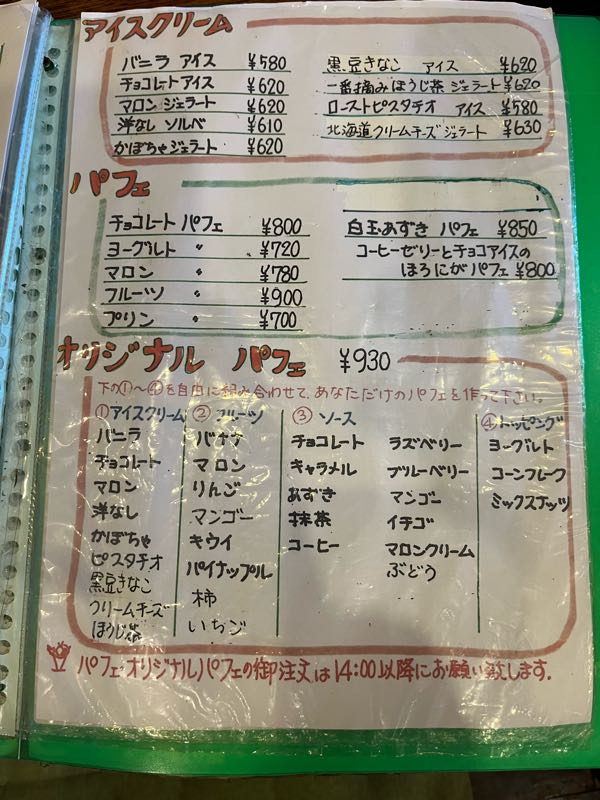 アイスクリーム
バニラ アイス ¥580
チョコレートアイス ¥620
マロン ジェラート ¥620
洋なし ソルベ ¥610
かぼちゃジェラート ¥620
黒豆きなこ アイス ¥620
一番摘みほうじ茶 ジェラート ¥620
ローストピスタチオ アイス ¥580
北海道クリームチーズジェラート ¥630
パフェ
チョコレート パフェ ¥800
ヨーグルト 〃 ¥720
マロン 〃 ¥780
フルーツ 〃 ¥900
プリン 〃 ¥700
白玉あずき パフェ ¥850
コーヒーゼリーとチョコアイスの
ほろにがパフェ ¥800
オリジナル パフェ ¥930
下の①〜④を自由に組み合わせて、あなただけのパフェを作って下さい。
①アイスクリーム
バニラ
チョコレート
マロン
洋なし
かぼちゃ
ピスタチオ
黒豆きなこ
クリームチーズ
ほうじ茶
② フルーツ
バナナ
マロン
りんご
マンゴー
キウイ
パイナップル
柿
いちご
③ ソース
チョコレート
キャラメル
あずき
抹茶
コーヒー
ラズベリー
ブルーベリー
マンゴー
イチゴ
マロンクリーム
ぶどう
④トッピング
ヨーグルト
コーンフレーク
ミックスナッツ
パフェ・オリジナルパフェの御注文は14:00以降にお願い致します。